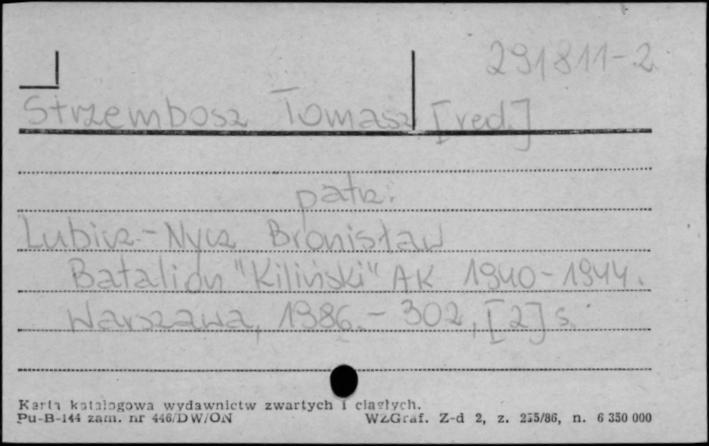 291811-2
Strzembosz Tomasz [red.]
patrz:
Lubicz-Nycz Bronisław
Batalion "Kiliński" AK 1940-1944.
Warszawa, 1986.- 302, [2] s.
Karta katalogowa wydawnictw zwartych i ciągłych.
Pu-B-144 zam. nr 446/DW/ON WZGraf. Z-d 2, z. 255/86, n. 6 350 000